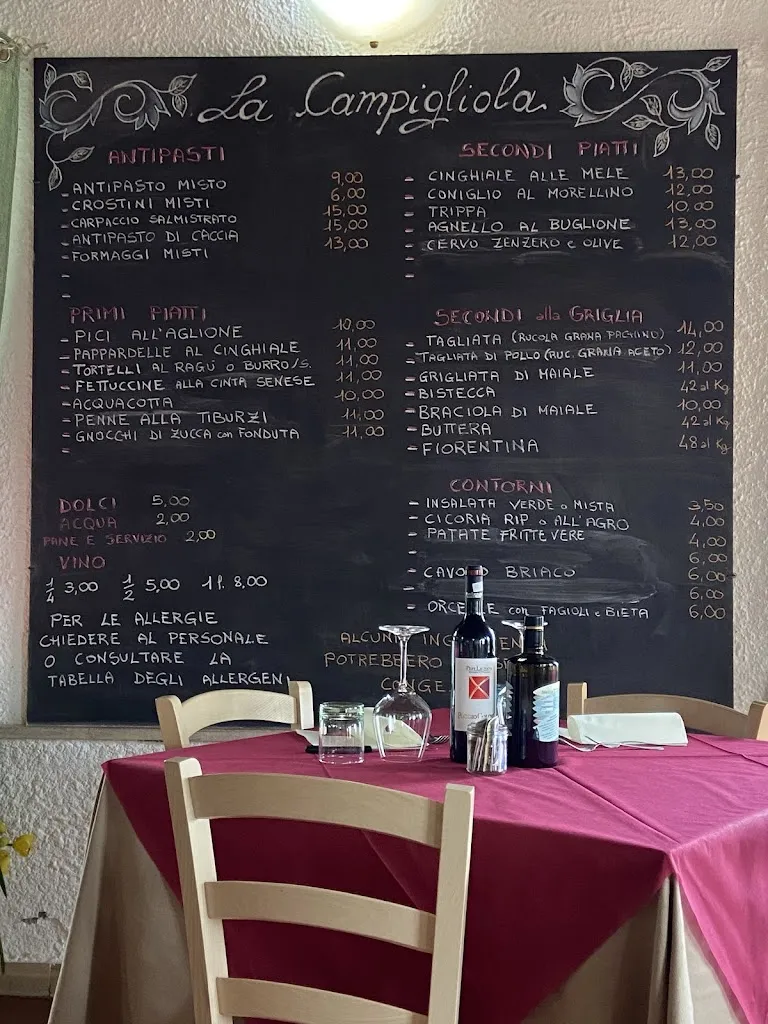 La Campigliola
ANTIPASTI
- ANTIPASTO MISTO 9,00
- CROSTINI MISTI 6,00
- CARPACCIO SALMISTRATO 15,00
- ANTIPASTO DI CACCIA 15,00
- FORMAGGI MISTI 13,00
-
-
PRIMI PIATTI
- PICI ALL'AGLIONE 10,00
- PAPPARDELLE AL CINGHIALE 11,00
- TORTELLI AL RAGÙ O BURRO/S. 11,00
- FETTUCCINE ALLA CINTA SENESE 11,00
- ACQUACOTTA 10,00
- PENNE ALLA TIBURZI 11,00
- GNOCCHI DI ZUCCA con FONDUTA 11,00
-
DOLCI 5,00
ACQUA 2,00
PANE E SERVIZIO 2,00
VINO
1/4 3,00 1/2 5,00 1 l. 8,00
PER LE ALLERGIE
CHIEDERE AL PERSONALE
O CONSULTARE LA
TABELLA DEGLI ALLERGENI
SECONDI PIATTI
- CINGHIALE ALLE MELE 13,00
- CONIGLIO AL MORELLINO 12,00
- TRIPPA 10,00
- AGNELLO AL BUGLIONE 13,00
- CERVO ZENZERO e OLIVE 12,00
-
-
SECONDI alla GRIGLIA
- TAGLIATA (RUCOLA GRANA PACHINO) 14,00
- TAGLIATA DI POLLO (RUC. GRANA ACETO) 12,00
- GRIGLIATA DI MAIALE 11,00
- BISTECCA 42 al Kg
- BRACIOLA DI MAIALE 10,00
- BUTTERA 42 al Kg
- FIORENTINA 48 al Kg
CONTORNI
- INSALATA VERDE o MISTA 3,50
- CICORIA RIP o ALL'AGRO 4,00
- PATATE FRITTE VERE 4,00
- 6,00
- CAVO BRIACO 6,00
- 6,00
- con FAGIOLI e BIETA 6,00
ALCUNI
POTREBBERO